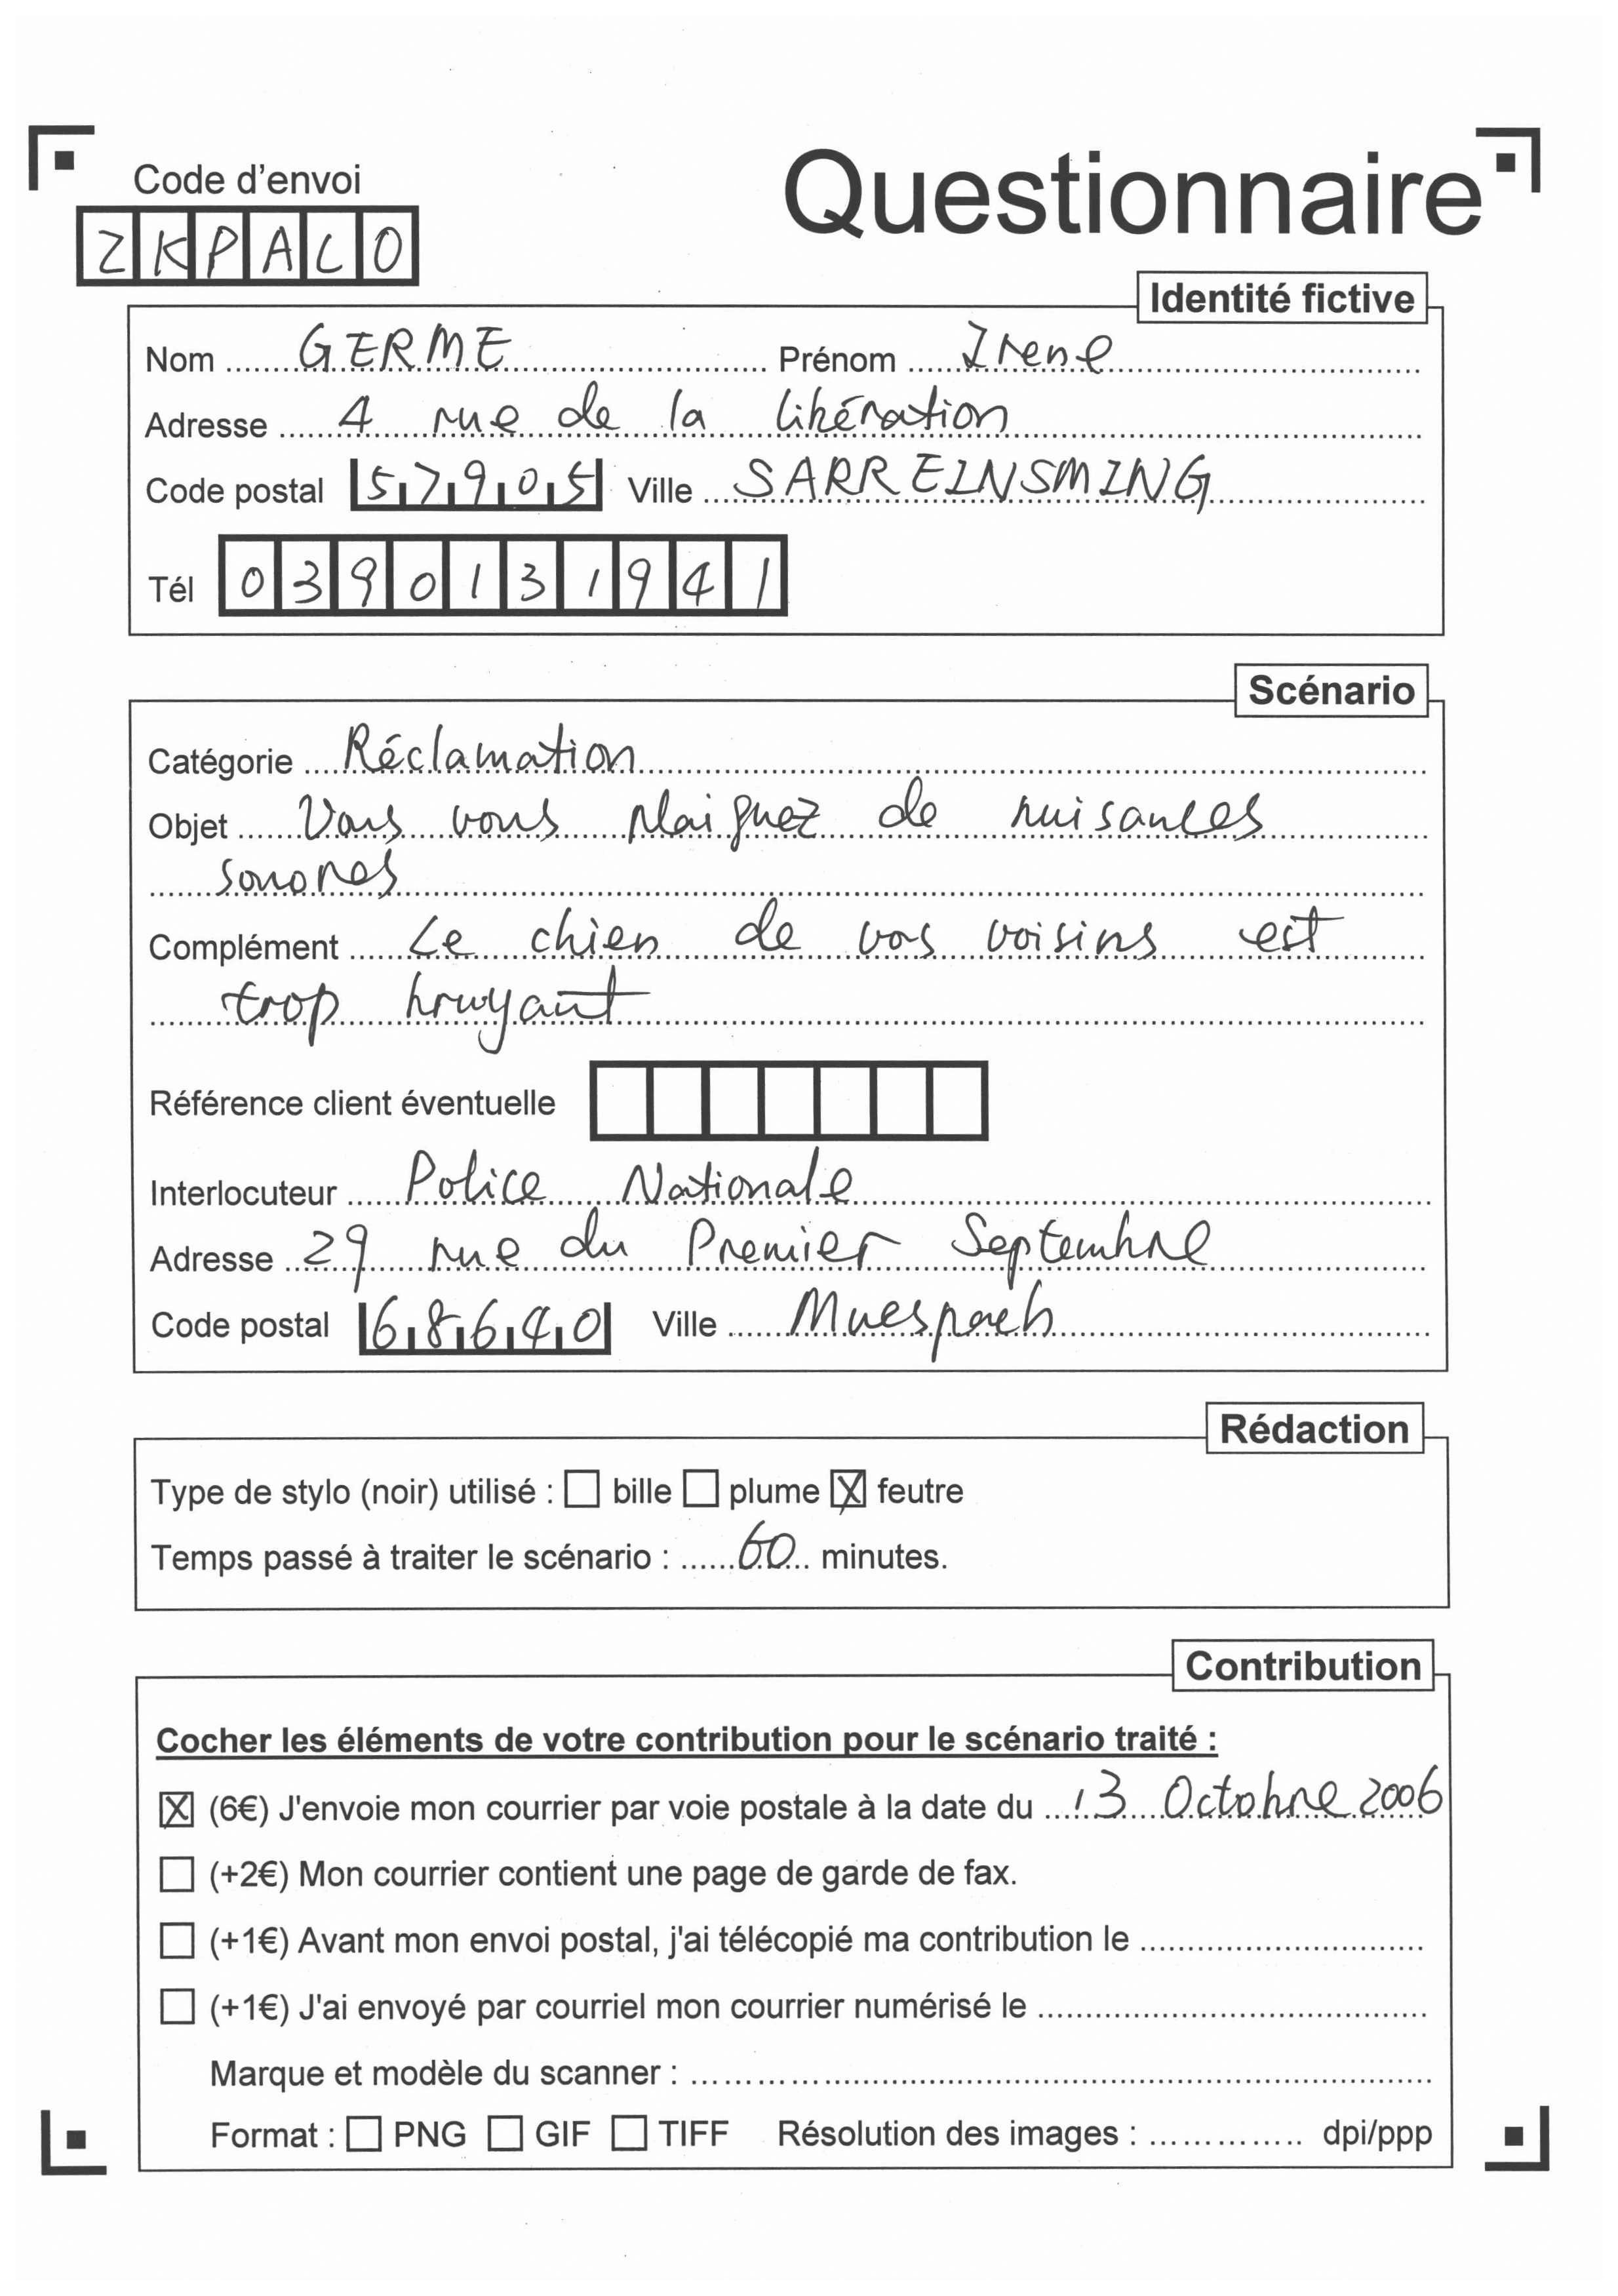 Code d'envoi
Questionnaire
ZKPALO
Identité fictive
Nom GERME Prénom Irene
Adresse 4 rue de la libération
Code postal 57905 Ville SARREINSMING
Tél 0390131941
Scénario
Catégorie Réclamation
Objet Vous vous plaignez de nuisances
sonores
Complément Le chien de vos voisins est
trop bruyant
Référence client éventuelle
Interlocuteur Police Nationale
Adresse 29 rue du Premier Septembre
Code postal 68640 Ville Muespach
Rédaction
Type de stylo (noir) utilisé : ☐ bille ☐ plume ☒ feutre
Temps passé à traiter le scénario : 60 minutes.
Contribution
Cocher les éléments de votre contribution pour le scénario traité :
☒ (6€) J'envoie mon courrier par voie postale à la date du 13 Octobre 2006
☐ (+2€) Mon courrier contient une page de garde de fax.
☐ (+1€) Avant mon envoi postal, j'ai télécopié ma contribution le
☐ (+1€) J'ai envoyé par courriel mon courrier numérisé le
Marque et modèle du scanner :
Format : ☐ PNG ☐ GIF ☐ TIFF Résolution des images : dpi/ppp